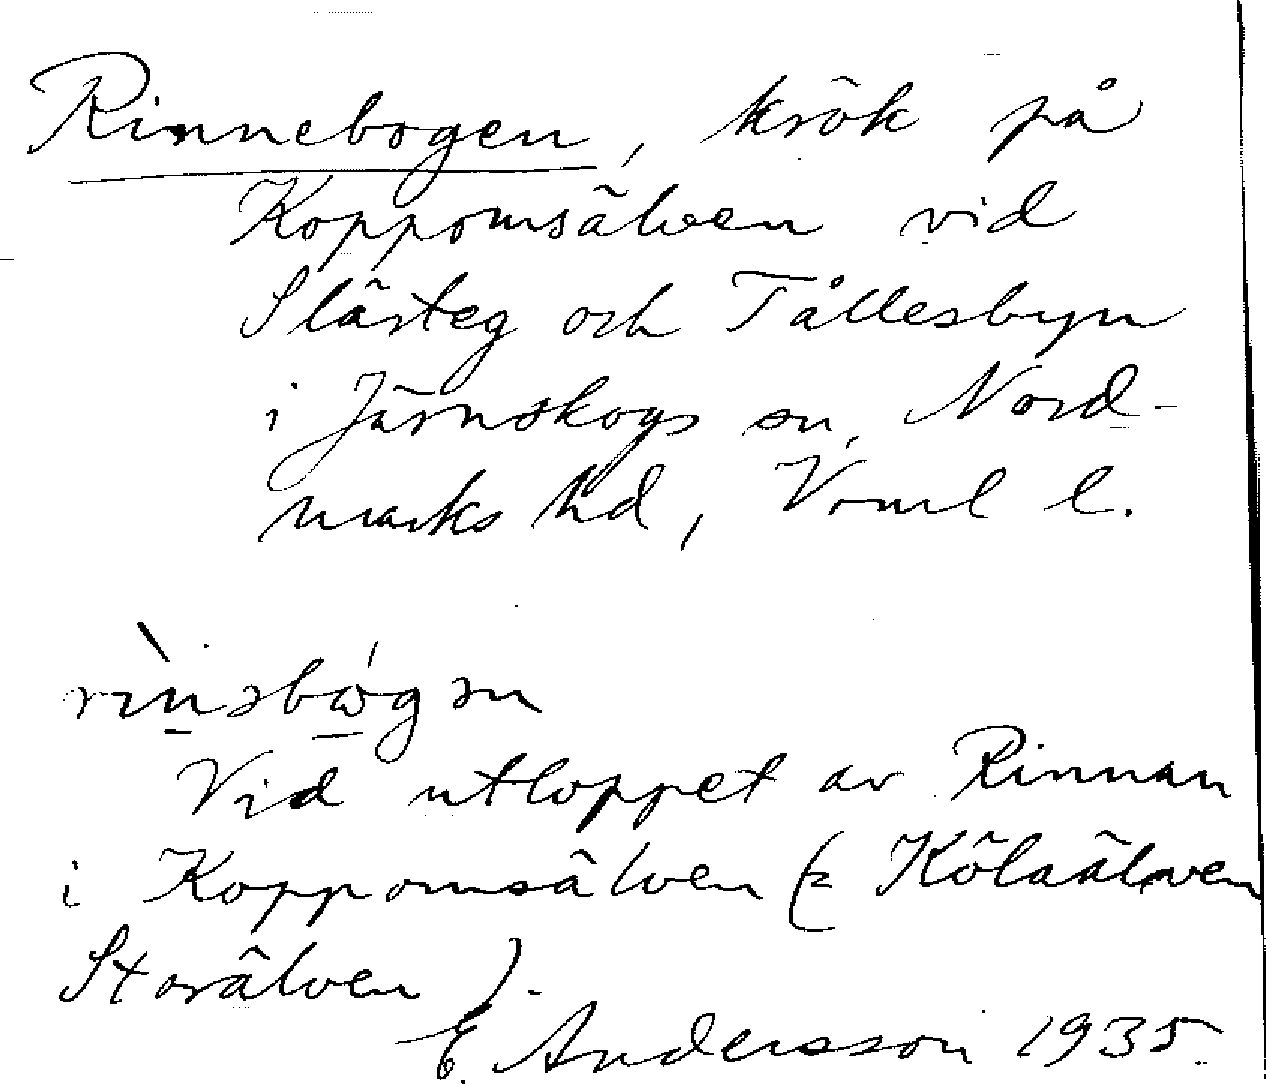 Rinnebogen, krök på
Koppomsälven vid
Slärteg och Tållesbyn
i Järnskogs sn, Nord-
marks hd, Vrml l.
rìnəbώgən
Vid utloppet av Rinnan
i Koppomsälven (= Kölaälven
Storälven).
E. Andersson 1935.